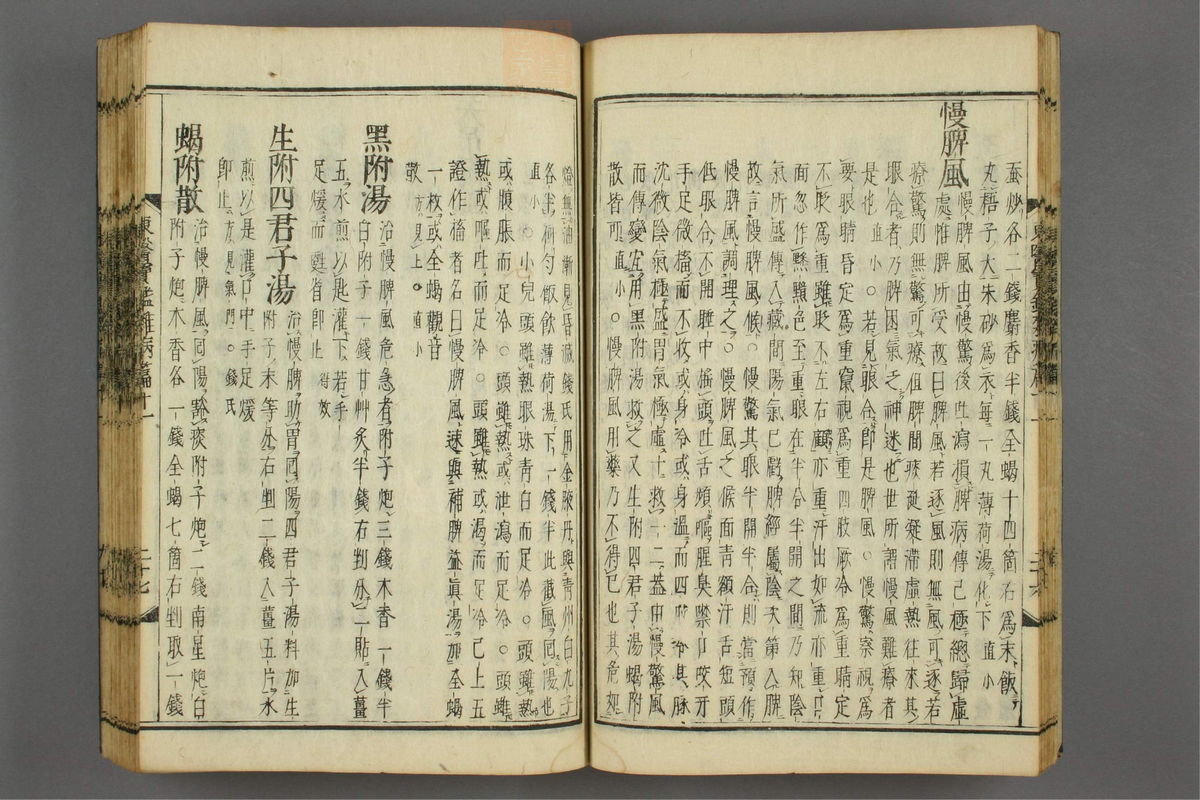 蚕炒各二錢麝香半錢全蝎十四箇右爲末飯
丸梧子大朱砂爲衣每一丸薄荷湯化下直小
慢脾風慢脾風由慢驚後吐瀉損脾病傳已極總歸虛
處惟脾所受故曰脾風若逐風則無風可逐若
療驚則無驚可療但脾間痰涎凝滯虛熱往來其
眼合者乃脾困氣乏神迷也世所謂慢風難療者
是也直小○若見眼合卽是脾風○慢驚察視爲
要眼睛昏定爲重窠視爲重四肢厥冷爲重睛定
不眨爲重雖眨不左右顧亦重汗出如流亦重口
面忽作黲色至重眼在半合半開之間乃知陰
氣所盛傳入藏間陽氣已虧脾經屬陰次第入脾
故言慢脾風候○慢驚其眼半開半合則當預作
慢脾風調理之○慢脾風之候面靑額汗舌短頭
低眼合不開睡中搖頭吐舌頻嘔腥臭噤口咬牙
手足微搐而不收或身冷或身溫而四肢冷其脉
沈微陰氣極盛胃氣極虛十救一二盖由慢驚風
而傳變宜用黑附湯救之又生附四君子湯蝎附
散皆可直小○慢脾風用藥乃不得已也其危如
燈無油漸見昏滅錢氏用金液丹與靑州白丸子
各半研勻飯飮薄荷湯下一錢半此截風回陽也
直小○小兒頭雖熱眼珠靑白而足冷○頭雖熱
或腹脹而足冷○頭雖熱或泄瀉而足冷○頭雖
熱或嘔吐而足冷○頭雖熱或渴而足冷已上五
證作搐者名曰慢脾風速與補脾益眞湯加全蝎
一枚或全蝎觀音
散方見上○直小
黑附湯治慢脾風危急者附子炮三錢木香一錢半
白附子一錢甘艸炙半錢右剉分二貼入薑
五水煎以匙灌下若手
足煖而甦皆卽止得效
生附四君子湯治慢脾助胃回陽四君子湯料加生
附子末等分右剉二錢入薑五片水
煎以是灌口中手足煖
卽止方見氣門○錢氏
蝎附散治慢脾風回陽豁痰附子炮二錢南星炮白
附子炮木香各一錢全蝎七箇右剉取一錢
東醫寶鑑雜病篇十一
二十七